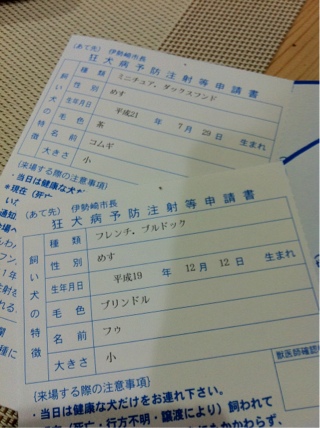 (あて先) 伊勢崎市長
狂犬病予防注射等申請書
飼い犬の特徴
種類 ミニチュア．ダックスフンド
性別 めす
生年月日 平成21 年 7月 29日 生まれ
毛色 茶
名前 コムギ
大きさ 小
(来場する際の注意事項)
・当日は健康な犬だ
＊現在 (死亡
(あて先) 伊勢崎市長
狂犬病予防注射等申請書
飼い犬の特徴
種類 フレンチ．ブルドック
性別 めす
生年月日 平成19 年 12月 12日 生まれ
毛色 ブリンドル
名前 フゥ
大きさ 小
獣医師確認
(来場する際の注意事項)
・当日は健康な犬だけをお連れ下さい。
(死亡・行方不明・譲渡により) 飼われて
にもかかわらず、